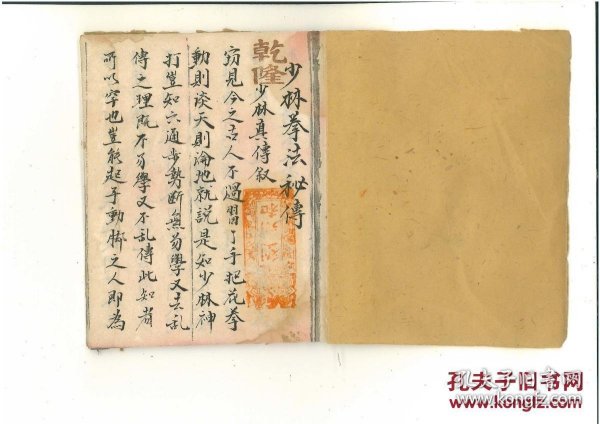 乾隆
少林拳法秘傳
少林真傳叙
窃見今之古人不過習了手把花拳
動則談天則論地就説是知少林神
打豈知六通步勢断無易學又去乱
傳之理既不易學又不乱傳此知者
所以罕也豈能起手動脚之人即為
孔夫子旧书网
www.kongfz.com